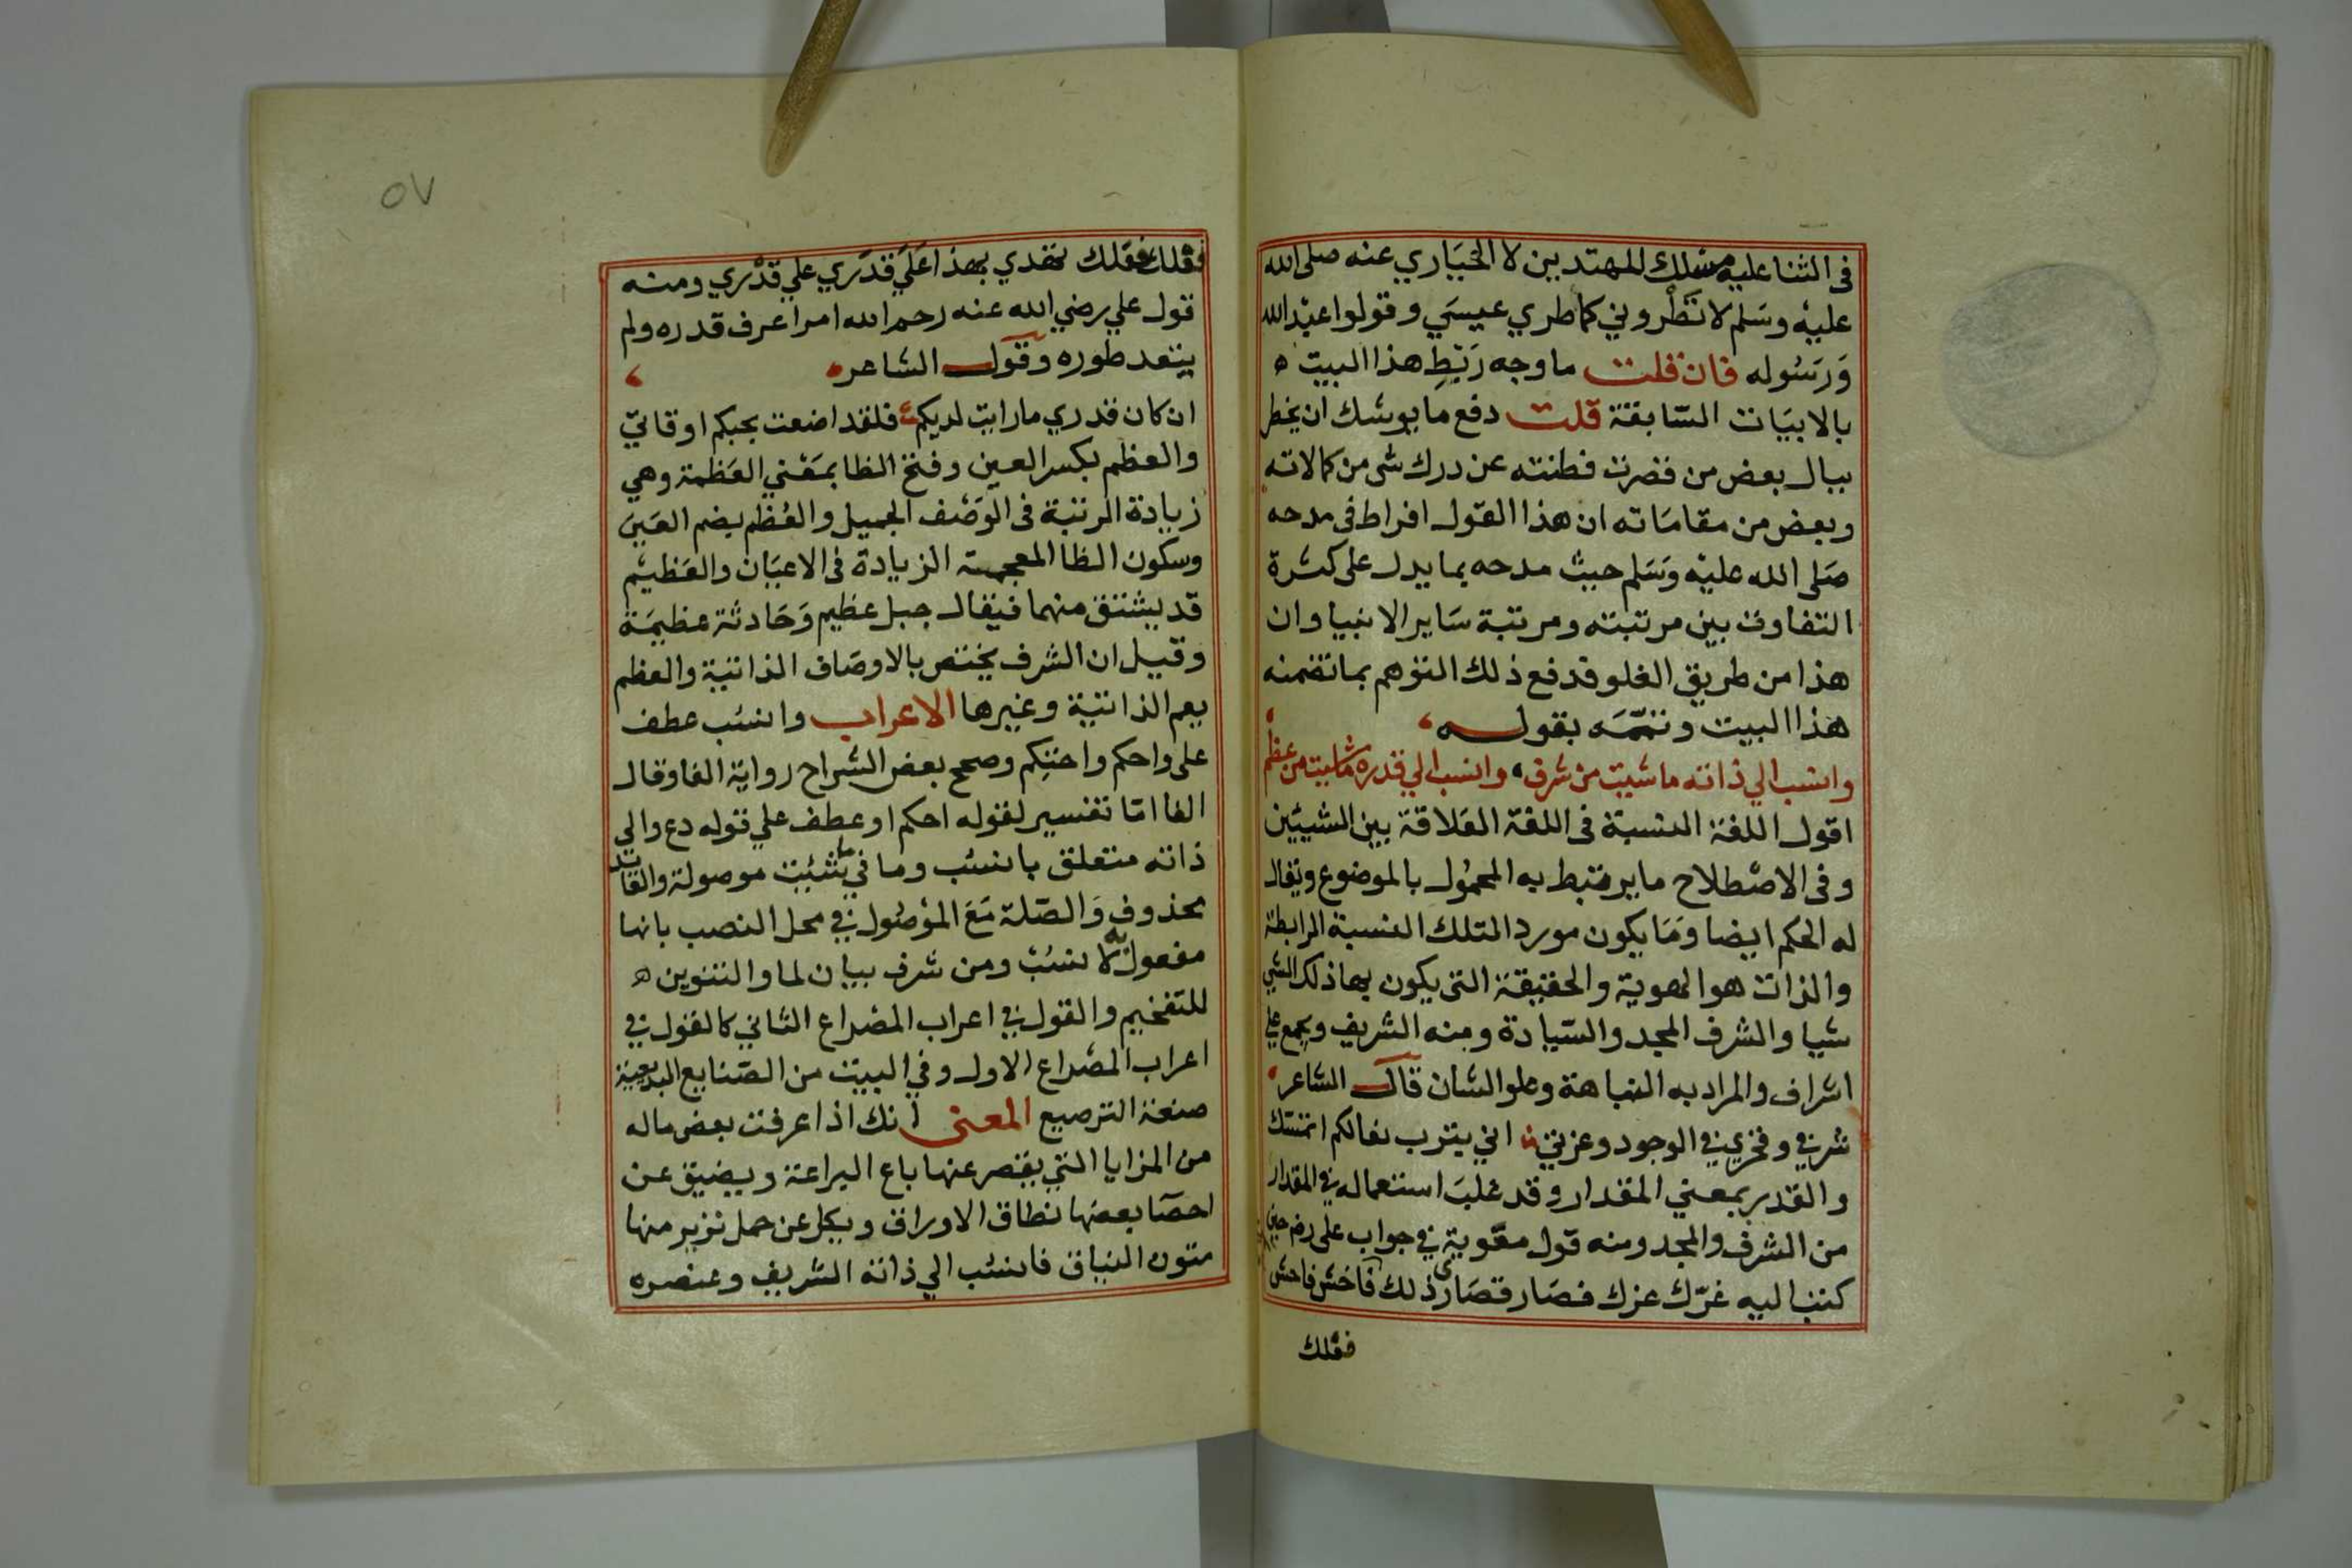 فى الثنا عليه مسلك المهتدين لا الحياري عنه صلى الله
عليه وسَلم لا تَطْروني كما طري عيسَي وقولوا عبْد الله
وَرَسُوله فان قلت ما وجه رَبْطِ هذا البيت ه
بالابيَات السّابقة قلت دفع ما يوشك ان يخطر
ببال بعض من قصرت فطنته عن درك شى من كمالاته
وبعض من مقامَاته ان هذا القول افراط فى مدحه
صَلى الله عليْه وسَلم حيث مدحه بما يدل على كثرة
التفاوت بين مرتبته ومرتبة سَاير الانبيا وان
هذا من طريق الغلو فدفع ذلك التوهم بما تضمنه
هذا البيت وتممَه بقوله
وانسب الي ذاته ما شيت من شرف، وانسب الي قدره ما شيت من عظم
اقول اللغة النسبة فى اللغة العَلاقة بين الشيئين
وفى الاصْطلاح ما يرتبط به المحمُول بالموضوع ويقال
له الحكم ايضا ومَا يكون مورد التلك النسبة الرابطة
والذات هو الهوية والحقيقة التى يكون بها ذلك الشي
شيا والشرف المجد والسّيادة ومنه الشريف ويجمع علي
اشراف والمراد به النباهة وعلو الشان قال الشاعر
شرفي وفخري في الوجود وعزتي اني بترب نعالكم اتمسك
والقدر بمعني المقدار وقد غلبَ استعماله في المقدار
من الشرف والمجد ومنه قول معوية في جواب على رضه حين
كتب اليه غرّك عزك فصَار قصَارى ذلك فاخش فاحش
فعلك
فعلك فعلك تهدي بهذا عَلَي قدَري علي قدْري ومنه
قول علي رضي الله عنه رحم الله امرا عرف قدره ولم
يتعد طوره وقول الشاعر
ان كان قدري ما رايت لديكم فلقد اضعت بحبكم اوقاتي
والعظم بكسر العين وفتح الظا بمَعْني العَظمة وهي
زيادة المرتبة فى الوَصْف الجميل والعُظم بضم العَين
وسكون الظا المعجمة الزيادة فى الاعيَان والعَظيم
قد يشتق منهما فيقال جبل عظيم وَحَادثة عظيمَة
وقيل ان الشرف يختص بالاوصَاف الذاتية والعظم
يعم الذاتية وغيرها الاعراب وانسُب عطف
على واحكم واحتكم وصحح بعض الشراح رواية الفا وقال
الفا امّا تفسير لقوله احكم او عطف علي قوله دع والي
ذاته متعلق بانسُب وما في ما شئيت موصولة والعائد
محذوف وَالصّلة مَعَ المؤصُول في محل النصب بانها
مفعول به لانسُبْ ومن شرف بيان لما والتنوين ه
للتفخيم والقول في اعراب المصْراع الثاني كالقول في
اعراب المصْراع الاول وفي البيت من الصّنايع البديعية
صنعة الترصيع المعنى انك اذا عرفت بعض ماله
من المزايا التي يقصر عنها باع اليراعة ويضيق عن
احصَا بعضها نطاق الاوراق ويكل عن حمل نزير منها
متون النياق فانسُب الي ذاته الشريف وعنصره
٥٧